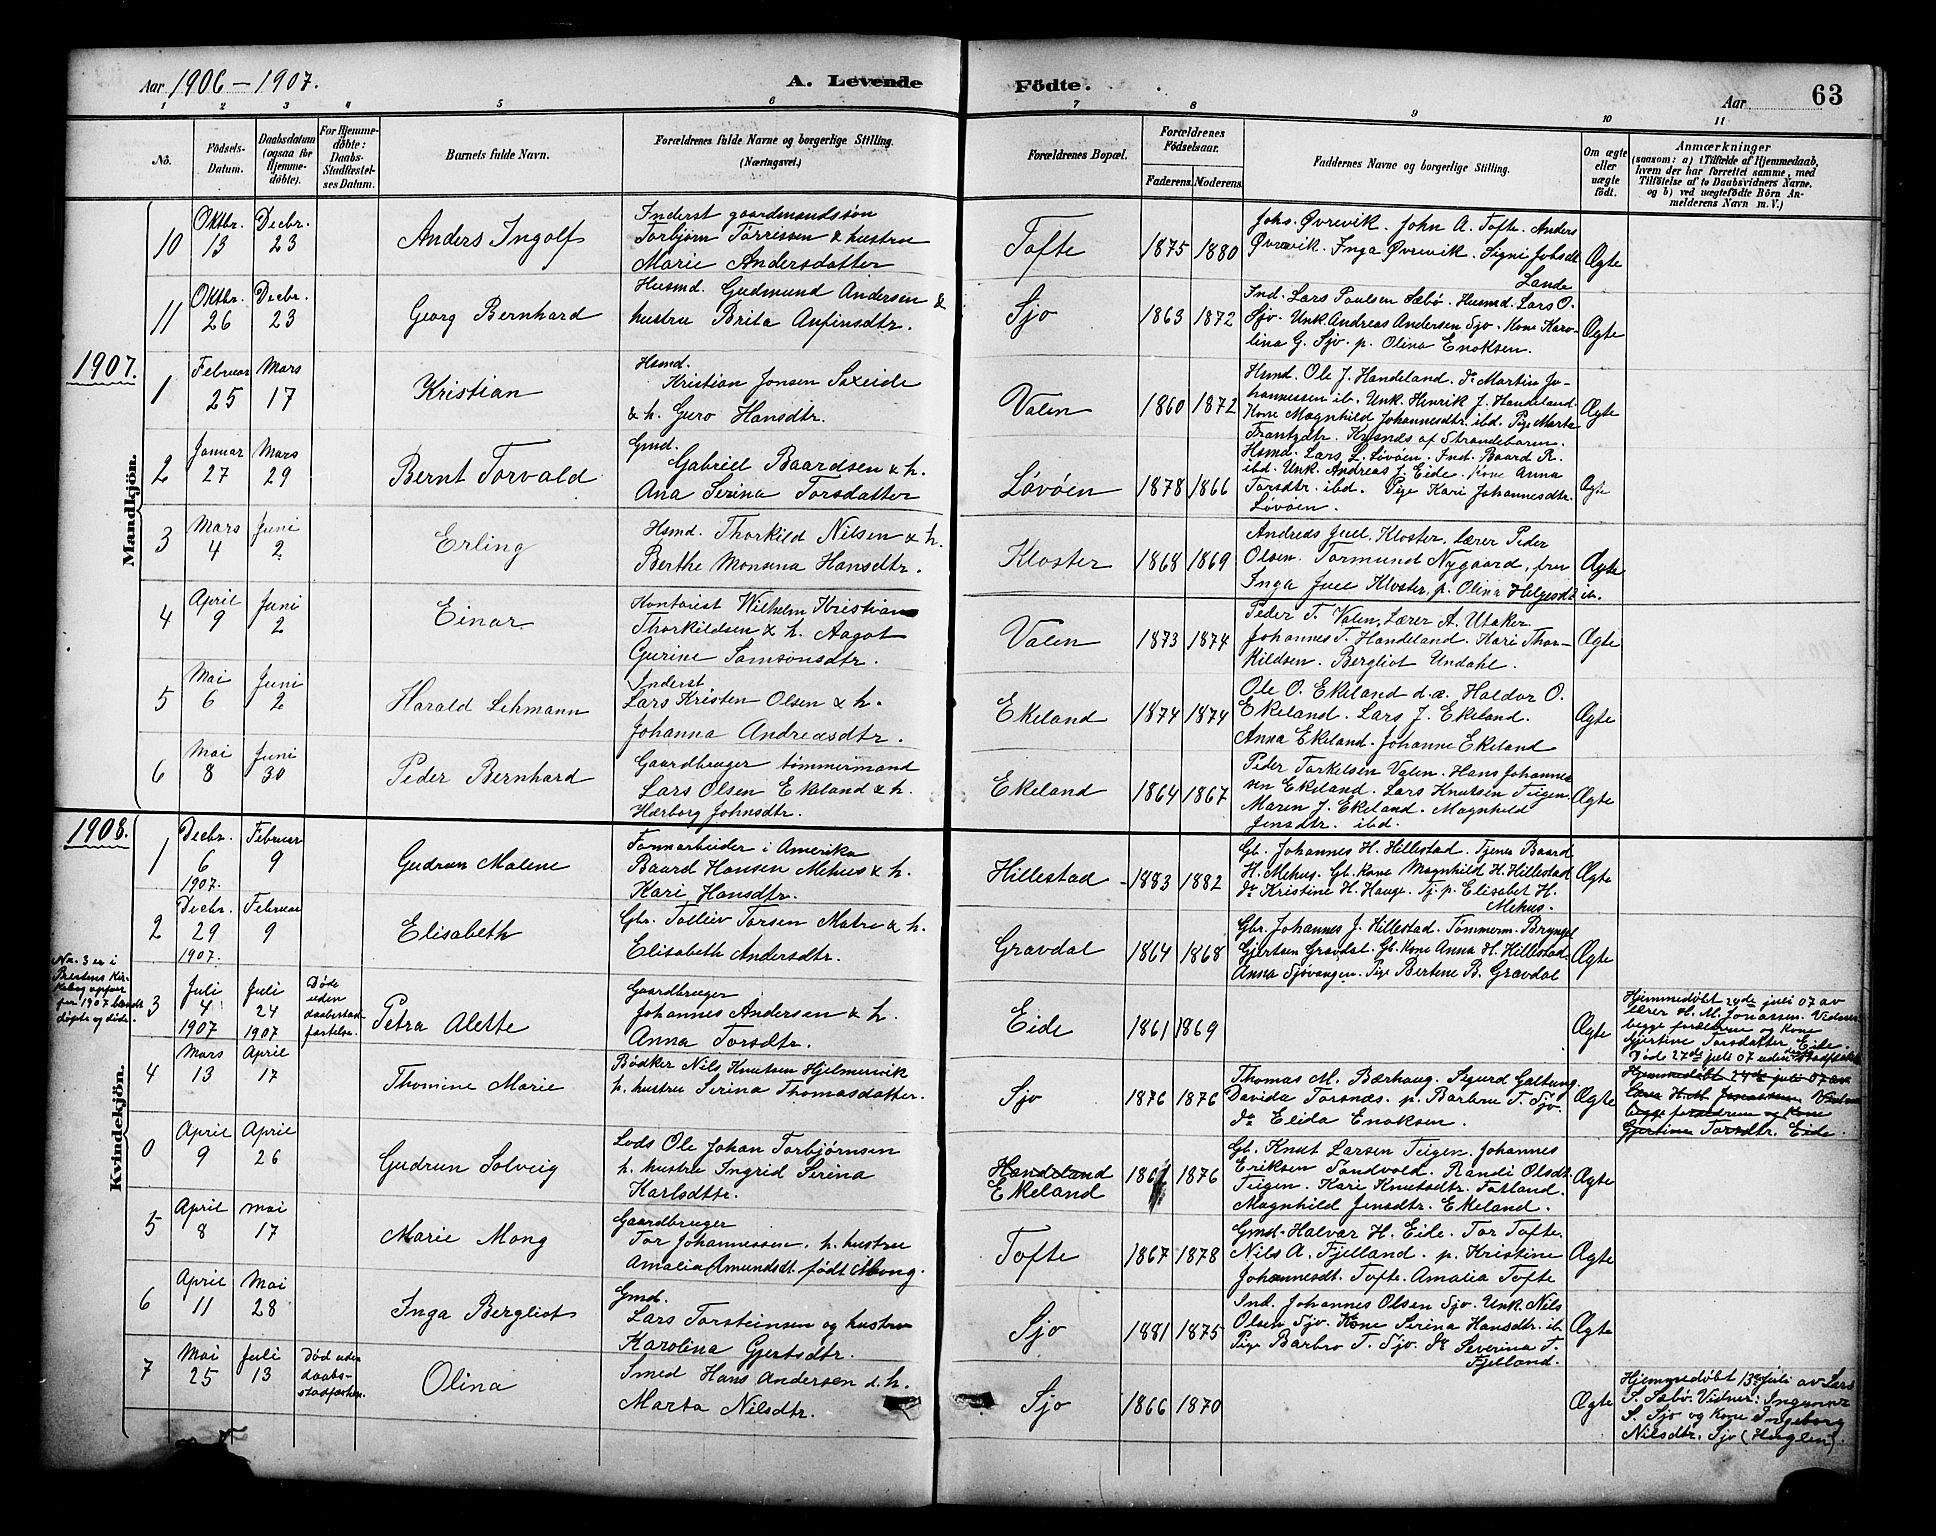 Aar 1906 – 1907.
A. Levende Födte.
Aar
63
1 2 3 4 5 6 7 8 9 10 11
No.
Födsels-Datum.
Daabsdatum (ogsaa for Hjemmedöbte).
For Hjemmedöbte: Daabs-Stadfæstelses Datum.
Barnets fulde Navn.
Forældrenes fulde Navne og borgerlige Stilling. (Næringsvei.)
Forældrenes Bopæl.
Forældrenes Födselsaar.
Faderens. Moderens.
Faddernes Navne og borgerlige Stilling.
Om ægte eller uægte født.
Anmærkninger
(saasom: a) i Tilfælde af Hjemmedaab, hvem der har forrettet samme, med Tilföielse af to Daabsvidners Navne, og b) ved uægtefödte Börn Anmelderens Navn m. V.)
Mandkjön.
10 Oktbr. 13 Decbr. 23 Anders Ingolf
Inderst gaardmandssøn
Torbjørn Tørrissen & hustru
Marie Andersdatter
Tofte 1875 1880
Johs. Øvrevik. John A. Tofte. Anders
Øvrevik. Inga Øvrevik. Signi Johsdt.
Lande
Ægte
11 Oktbr. 26 Decbr. 23 Georg Bernhard
Husmd. Gudmund Andersen &
hustru Brita Anfinsdtr.
Sjo 1863 1872
Ind. Lars Poulsen Sæbö. Husmd. Lars O.
Sjo. Unk. Andreas Andersen Sjo. Kone Karo-
lina G. Sjo. p. Olina Enoksen.
Ægte
1907.
1 Februar 25 Mars 17 Kristian
Hsmd.
Kristian Jonsen Saxeide
& h. Guro Hansdtr.
Valen 1860 1872
Hsmd. Ole J. Handeland. do Martin Jo-
hannessen ib. Unk. Henrik J. Handeland.
Kone Magnhild Johannesdtr. ibd. Pige Marta
Frantzdtr. Kysnes af Strandebarm.
Ægte
2 Januar 27 Mars 29 Bernt Torvald
Gmd.
Gabriel Baardsen & h.
Ana Serina Torsdatter
Løvøen 1878 1866
Hsmd. Lars L. Løvøen. Ind. Baard R.
ibd. Unk. Andreas J. Eide. Kone Anna
Torsdtr. ibd. Pige Kari Johannesdtr.
Løvøen.
Ægte
3 Mars 4 Juni 2 Erling
Hsmd. Thorkild Nilsen & h.
Berthe Monsina Hansdtr.
Kloster 1868 1869
Andreas Juel, Kloster, Lærer Peder
Olsen. Tormund Nygaard, fru
Inga Juel Kloster, p. Olina Helgesdt. ib.
Ægte
4 April 9 Juni 2 Einar.
Kontorist Wilhelm Kristian
Thorkildsen & h. Aagot
Gurine Samsonsdtr.
Valen 1873 1874
Peder T. Valen, Lærer A. Utaker.
Johannes T. Handeland. Kari Thor-
kildsen. Bergliot Undahl.
Ægte
5 Mai 6 Juni 2 Harald Lehmann
Inderst
Lars Kristen Olsen & h.
Johanna Andreasdtr.
Ekeland 1874 1874
Ole O. Ekeland d.æ. Haldor O.
Ekeland. Lars J. Ekeland.
Anna Ekeland. Johanne Ekeland
Ægte
6 Mai 8 Juni 30 Peder Bernhard
Gaardbruger tømmermand
Lars Olsen Ekeland & h.
Herborg Johnsdtr.
Ekeland 1864 1867
Peder Torkelsen Valen. Hans Johannes
sen Ekeland. Lars Knutsen Teigen.
Maren J. Ekeland. Magnhild
Jensdtr. ibd.
Ægte
1908.
Kvindekjön.
1 Decbr. 6 1907. Februar 9 Gudrun Malene
Formarbeider i Amerika
Baard Hansen Mehus & h.
Kari Hansdtr.
Hillestad 1883 1882
Gb. Johannes H. Hillestad. Tjenes Baard
H. Mehus. Gb. kone Magnhild H. Hillestad
do Kristine H. Hauge. Tj. p. Elisabet H.
Mehus.
Ægte
2 Decbr. 29 1907. Februar 9 Elisabeth
Gbr. Tolleiv Torsen Matre & h.
Elisabeth Andersdtr.
Gravdal 1864 1868
Gbr. Johannes J. Hillestad. Tømmerm. Brynjel
Gjertsen Gravdal. Gb. kone Anna H. Hillestad.
Anna Sjovangen. Pige Bertine B. Gravdal
Ægte
No. 3 er i
Prestens Kir-
kebog opført
for 1907 bland
døpte og døde.
3 Juli 4 1907 Juli 24 1907
Døde
uden
daabsstad
fæstelse.
Petra Alette
Gaardbruger
Johannes Andersen & h.
Anna Torsdtr.
Eide 1861 1869
Ægte
Hjemmedøbt 24de juli 07 av
lærer H. M. Jonassen. Vidner:
begge forældrene og Kone
Gjertine Torsdatter Eide.
Død 27de juli 07 uden
4 Mars 13 April 17 Thomine Marie
Bødker Nils Knutsen Hjelmervik
h. hustru Serina Thomasdatter.
Sjo 1876 1876
Thomas M. Bærhaug. Sigurd Galtung.
Davida Torsnæs. p. Barbru T. Sjo.
do Elida Enoksen.
Ægte
Hjemmedøbt 24de juli 07 av
Lærer H. M. Jonassen
begge forældrene og Kone
Gjertine Torsdtr. Eide.
0 April 9 April 26 Gudrun Solveig
Lods Ole Johan Torbjørnsen
h. hustru Ingrid Serina
Karlsdttr.
Handeland
Ekeland 1876
Gb. Knut Larsen Teigen. Johannes
Eriksen Tandvold. Randi Olsdt.
Teigen. Kari Knutsdtr. Tatland.
Magnhild Jensdtr. Ekeland.
Ægte
5 April 8 Mai 17 Marie Mong
Gaardbruger
Tor Johannessen. h. hustru
Amalia Amundsdt. født Mong.
Tofte 1867 1878
Gmd. Halvar H. Eide. Tor Tofte.
Nils A. Fjelland. p. Kristine
Johannesdt. Tofte. Amalia Tofte
Ægte
6 April 11 Mai 28 Inga Bergliot
Gmd.
Lars Torsteinsen og hustru
Karolina Gjertsdtr.
Sjo 1881 1875
Ind. Johannes Olsen Sjo. Unk. Nils
Olsen Sjo. Kone Serina Hansdtr. ib.
Pige Barbro T. Sjo. do Severina T.
Fjelland.
Ægte
7 Mai 25 Juli 13
Død uden
daabs-
stadfæstelse.
Olina
Smed Hans Andersen d. h.
Marta Nilsdtr.
Sjo 1866 1870
Ægte
Hjemmedøbt 13de juli av Lars
S. Sæbø. Vidner: Ingvour
S. Sjo og Kone Ingeborg
Nilsdtr. Sjo (Haglen).